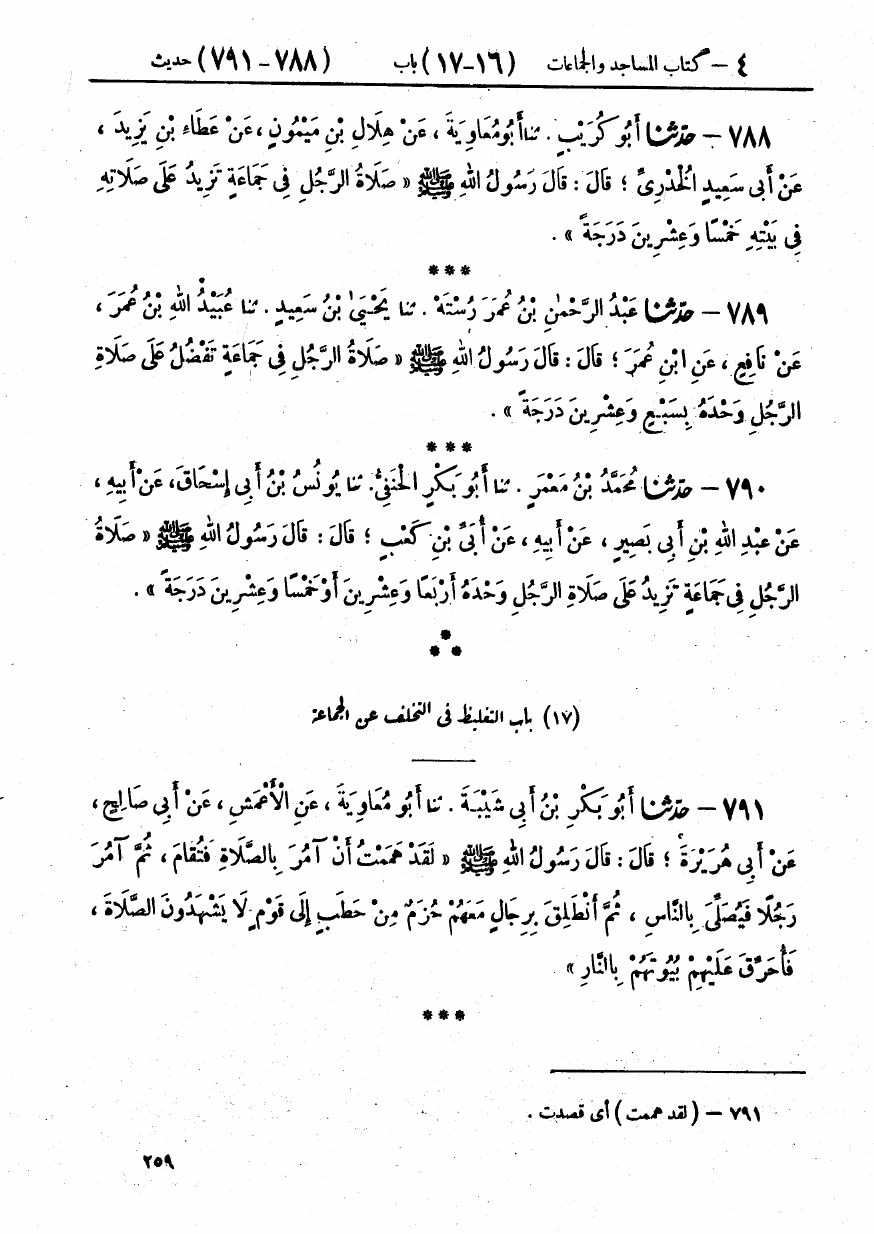 ٤ – كتاب المساجد والجماعات (١٦-١٧) باب (٧٨٨ – ٧٩١) حديث
٧٨٨ – حَدَّثَنَا أَبُو كُرَيْبٍ . ثنا أَبُو مُعَاوِيَةَ ، عَنْ هِلَالِ بْنِ مَيْمُونٍ ، عَنْ عَطَاءِ بْنِ يَزِيدَ ،
عَنْ أَبِى سَعِيدٍ الْخُدْرِىِّ ؛ قَالَ : قَالَ رَسُولُ اللهِ ﷺ « صَلَاةُ الرَّجُلِ فِى جَمَاعَةٍ تَزِيدُ عَلَى صَلَاتِهِ
فِى بَيْتِهِ خَمْسًا وَعِشْرِينَ دَرَجَةً » .
***
٧٨٩ – حَدَّثَنَا عَبْدُ الرَّحْمٰنِ بْنُ عُمَرَ رُسْتَهْ . ثنا يَحْيَىٰ بْنُ سَعِيدٍ . ثنا عُبَيْدُ اللهِ بْنُ عُمَرَ ،
عَنْ نَافِعٍ ، عَنِ ابْنِ عُمَرَ ؛ قَالَ : قَالَ رَسُولُ اللهِ ﷺ « صَلَاةُ الرَّجُلِ فِى جَمَاعَةٍ تَفْضُلُ عَلَى صَلَاةِ
الرَّجُلِ وَحْدَهُ بِسَبْعٍ وَعِشْرِينَ دَرَجَةً » .
***
٧٩٠ – حَدَّثَنَا مُحَمَّدُ بْنُ مَعْمَرٍ . ثنا أَبُو بَكْرٍ الْحَنَفِىُّ. ثنا يُونُسُ بْنُ أَبِى إِسْحَاقَ، عَنْ أَبِيهِ ،
عَنْ عَبْدِ اللهِ بْنِ أَبِى بَصِيرٍ ، عَنْ أَبِيهِ ، عَنْ أُبَىِّ بْنِ كَعْبٍ ؛ قَالَ : قَالَ رَسُولُ اللهِ ﷺ « صَلَاةُ
الرَّجُلِ فِى جَمَاعَةٍ تَزِيدُ عَلَى صَلَاةِ الرَّجُلِ وَحْدَهُ أَرْبَعًا وَعِشْرِينَ أَوْ خَمْسًا وَعِشْرِينَ دَرَجَةً » .
*
* *
(١٧) باب التغليظ فى التخلف عن الجماعة
٧٩١ – حَدَّثَنَا أَبُو بَكْرِ بْنُ أَبِى شَيْبَةَ . ثنا أَبُو مُعَاوِيَةَ ، عَنِ الْأَعْمَشِ ، عَنْ أَبِى صَالِحٍ ،
عَنْ أَبِى هُرَيْرَةَ ؛ قَالَ : قَالَ رَسُولُ اللهِ ﷺ « لَقَدْ هَمَمْتُ أَنْ آمُرَ بِالصَّلَاةِ فَتُقَامَ ، ثُمَّ آمُرَ
رَجُلًا فَيُصَلِّىَ بِالنَّاسِ ، ثُمَّ أَنْطَلِقَ بِرِجَالٍ مَعَهُمْ حُزَمٌ مِنْ حَطَبٍ إِلَى قَوْمٍ لَا يَشْهَدُونَ الصَّلَاةَ ،
فَأُحَرِّقَ عَلَيْهِمْ بُيُوتَهُمْ بِالنَّارِ »
***
٧٩١ – ( لقد هممت ) أى قصدت .
٢٥٩